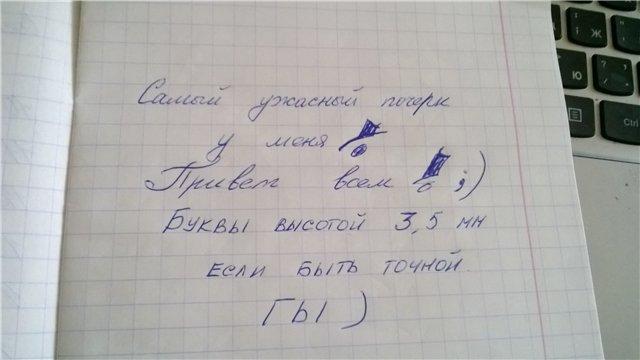 Самый ужасный почерк
у меня !
Привет всем ! ;)
Буквы высотой 3,5 мм
если быть точной.
ГЫ )
Ю
Ctrl